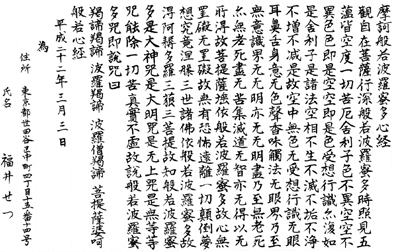 摩訶般若波羅蜜多心経
観自在菩薩行深般若波羅蜜多時照見五
蘊皆空度一切苦厄舎利子色不異空空不
異色色即是空空即是色受想行識亦復如
是舎利子是諸法空相不生不滅不垢不浄
不増不減是故空中無色无受想行識无眼
耳鼻舌身意无色聲香味觸法无眼界乃至
無意識界无无明亦无无明盡乃至無老死
亦无老死盡无苦集滅道无智亦无得以无
所得故菩提薩埵依般若波羅蜜多故心無
罣礙无罣礙故無有恐怖遠離一切顛倒夢
想究竟涅槃三世諸佛依般若波羅蜜多故
得阿耨多羅三藐三菩提故知般若波羅蜜
多是大神咒是大明咒是无上咒是無等等
咒能除一切苦真實不虚故説般若波羅蜜
多咒即説咒曰
羯諦羯諦 波羅羯諦 波羅僧羯諦 菩提薩婆呵
般若心経
平成二十二年三月三日
為
住所 東京都世田谷区中町四丁目十五番十四号
氏名 福井せつ